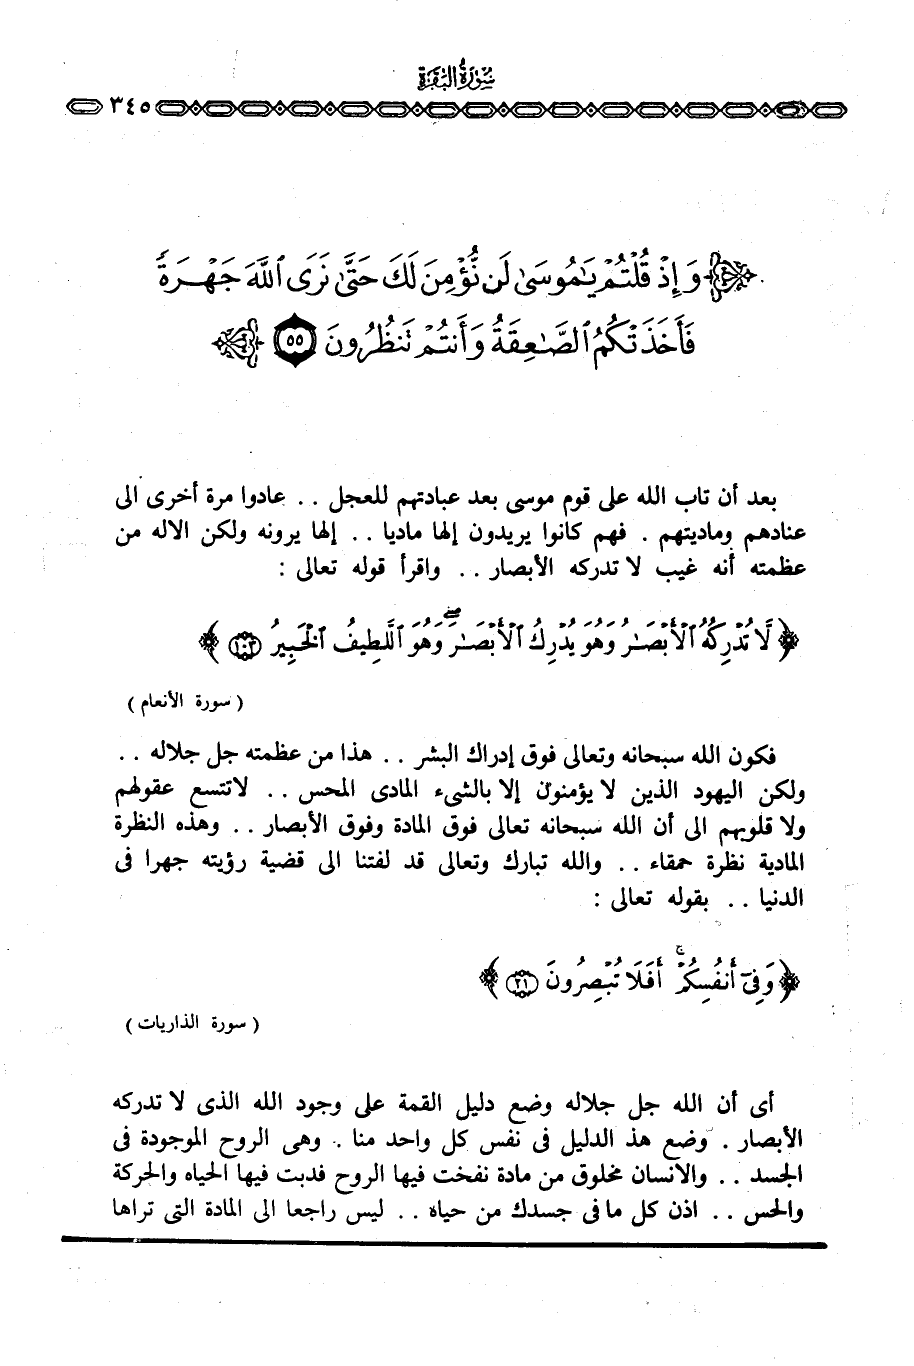 سُورَةُ البَقَرَةِ
٣٤٥
وَإِذْ قُلْتُمْ يَٰمُوسَىٰ لَن نُّؤْمِنَ لَكَ حَتَّىٰ نَرَى ٱللَّهَ جَهْرَةً
فَأَخَذَتْكُمُ ٱلصَّٰعِقَةُ وَأَنتُمْ تَنظُرُونَ ٥٥
بعد أن تاب الله على قوم موسى بعد عبادتهم للعجل . . عادوا مرة أخرى الى
عنادهم وماديتهم . فهم كانوا يريدون إلها ماديا . . إلها يرونه ولكن الاله من
عظمته أنه غيب لا تدركه الأبصار . . واقرأ قوله تعالى :
﴿ لَّا تُدْرِكُهُ ٱلْأَبْصَٰرُ وَهُوَ يُدْرِكُ ٱلْأَبْصَٰرَ ۖ وَهُوَ ٱللَّطِيفُ ٱلْخَبِيرُ ١٠٣ ﴾
( سورة الأنعام )
فكون الله سبحانه وتعالى فوق إدراك البشر . . هذا من عظمته جل جلاله . .
ولكن اليهود الذين لا يؤمنون إلا بالشىء المادى المحس . . لاتتسع عقولهم
ولا قلوبهم الى أن الله سبحانه تعالى فوق المادة وفوق الأبصار . . وهذه النظرة
المادية نظرة حمقاء . . والله تبارك وتعالى قد لفتنا الى قضية رؤيته جهرا فى
الدنيا . . بقوله تعالى :
﴿ وَفِىٓ أَنفُسِكُمْ ۚ أَفَلَا تُبْصِرُونَ ٢١ ﴾
( سورة الذاريات )
أى أن الله جل جلاله وضع دليل القمة على وجود الله الذى لا تدركه
الأبصار . وضع هذ الدليل فى نفس كل واحد منا . وهى الروح الموجودة فى
الجسد . . والانسان مخلوق من مادة نفخت فيها الروح فدبت فيها الحياه والحركة
والحس . . اذن كل ما فى جسدك من حياه . . ليس راجعا الى المادة التى تراها